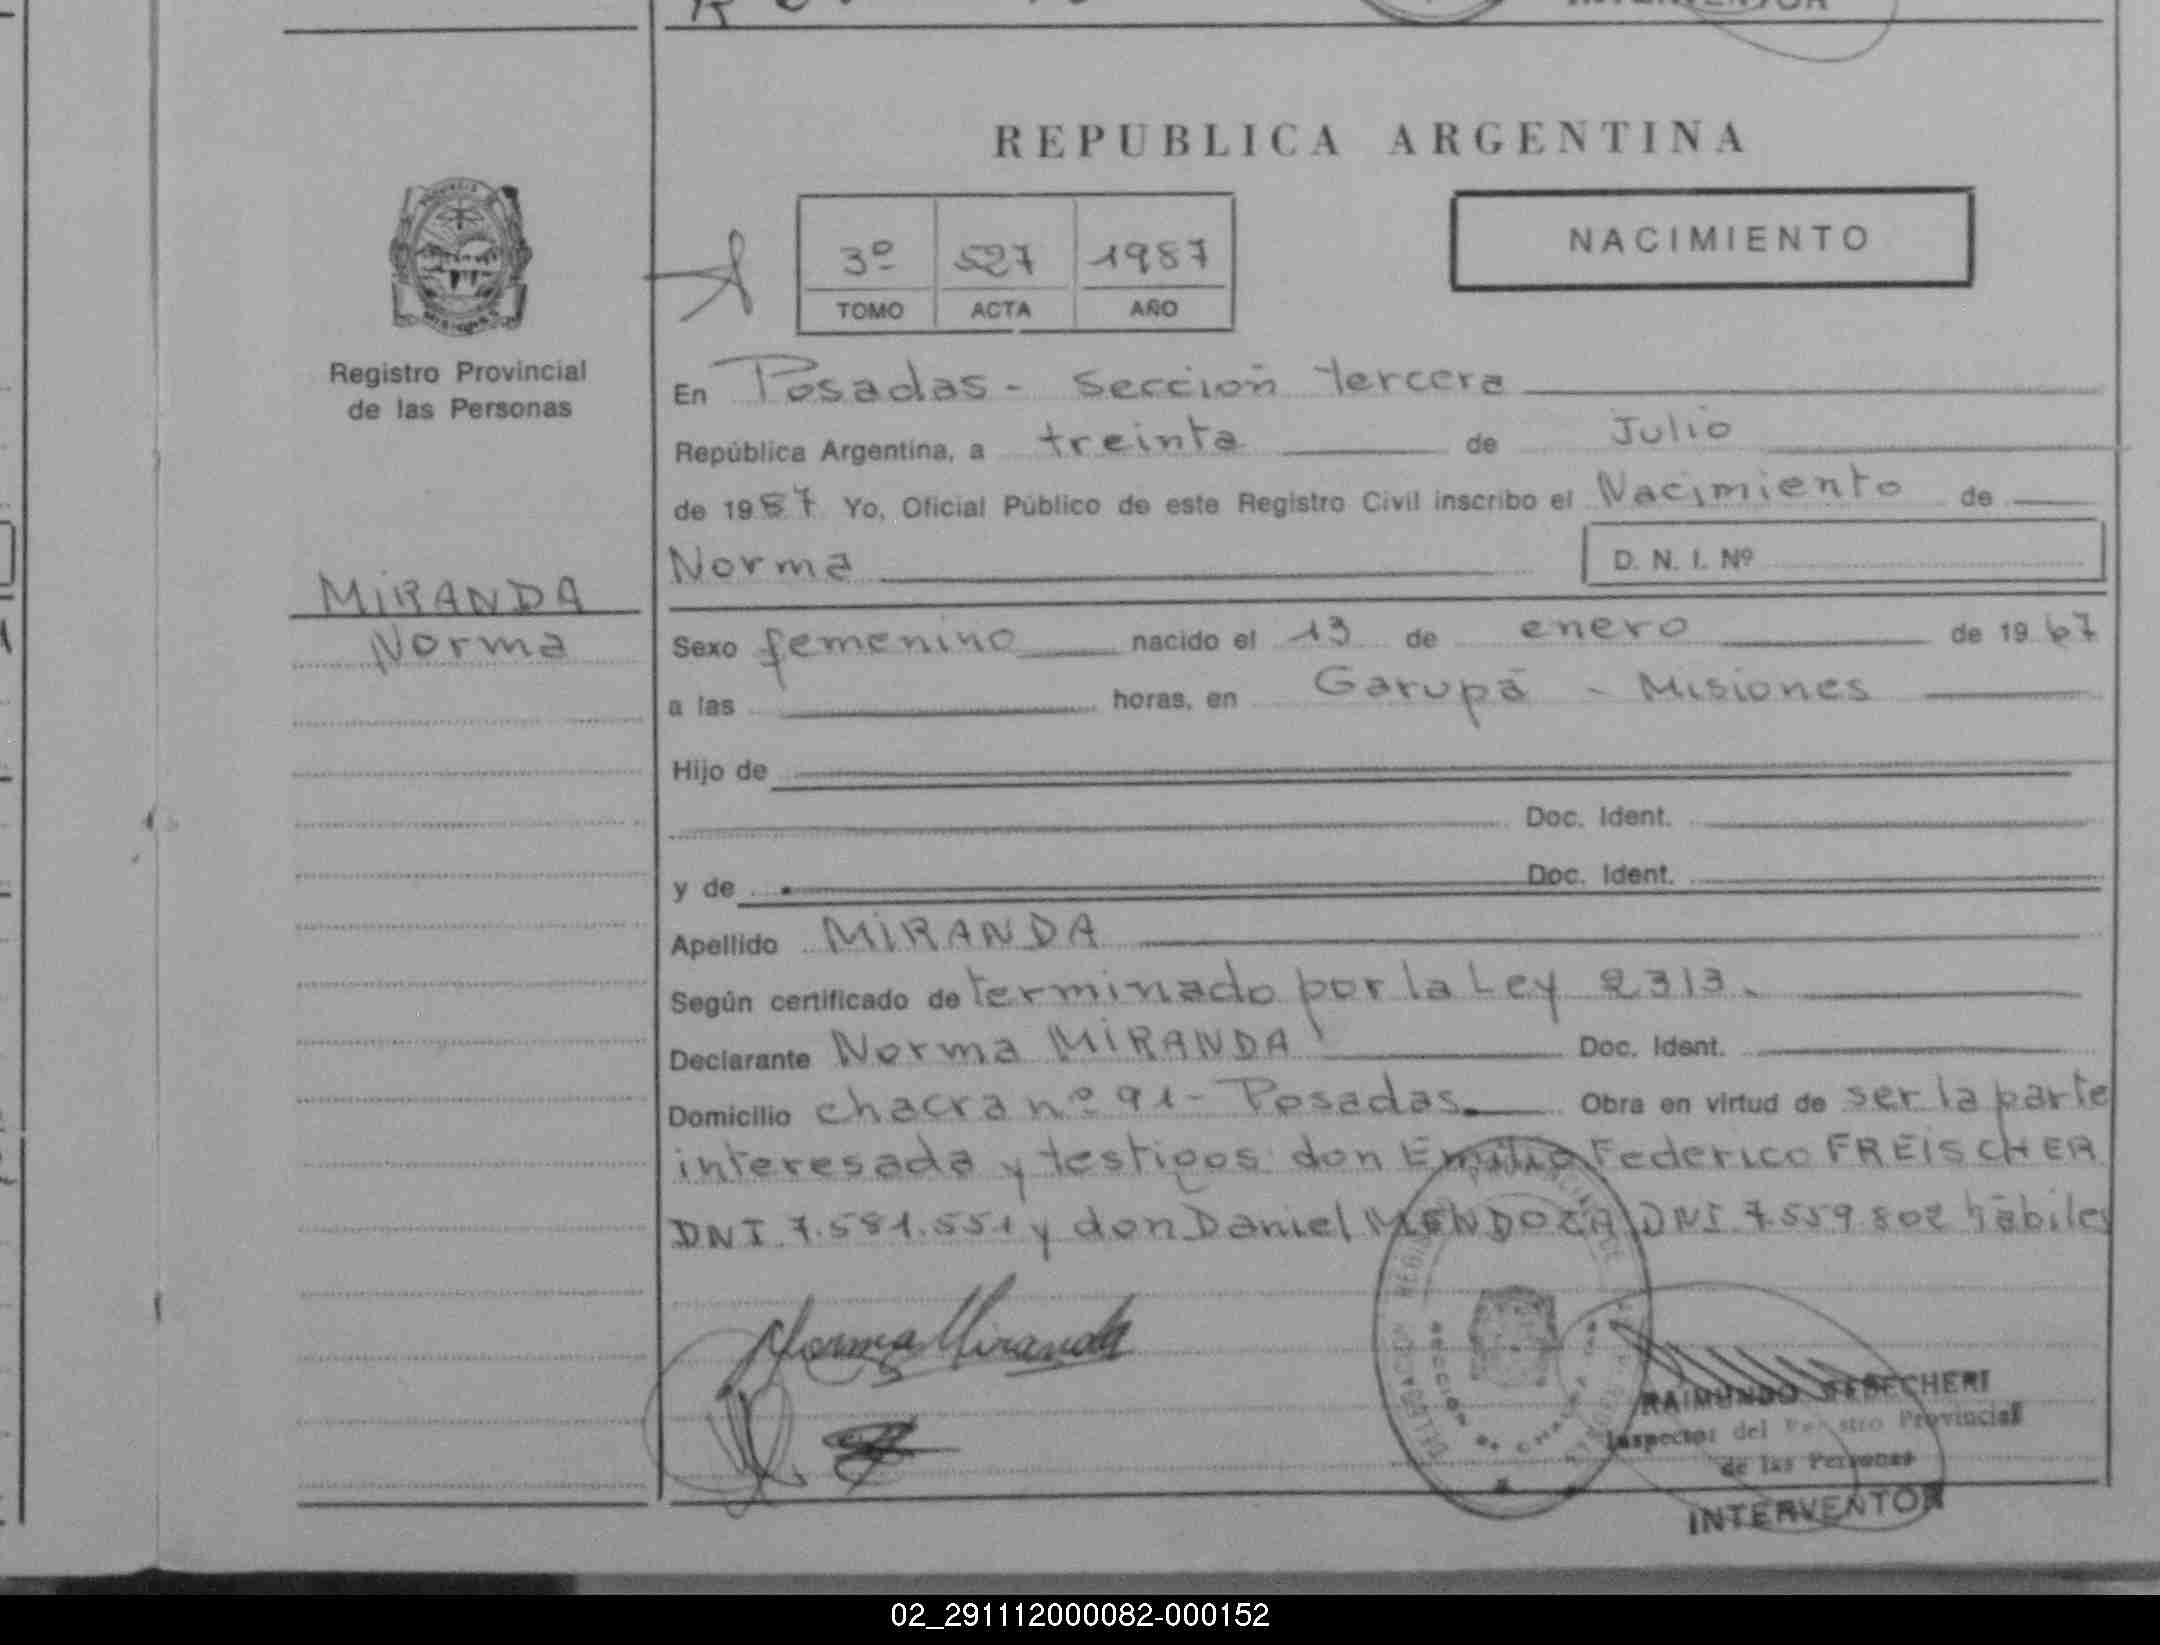 REPUBLICA ARGENTINA
NACIMIENTO
3º 527 1987
TOMO ACTA AÑO
Registro Provincial
de las Personas
MIRANDA
Norma
En Posadas - Sección tercera
República Argentina, a treinta de Julio
de 1987 Yo, Oficial Público de este Registro Civil inscribo el Nacimiento de
Norma D. N. I. Nº
Sexo femenino nacido el 13 de enero de 1967
a las horas, en Garupá - Misiones
Hijo de
Doc. Ident.
y de Doc. Ident.
Apellido MIRANDA
Según certificado de terminado por la Ley 2313.
Declarante Norma MIRANDA Doc. Ident.
Domicilio chacra nº 91 - Posadas Obra en virtud de ser la parte
interesada y testigos don Emilio Federico FREISCHER
DNI 7.581.551 y don Daniel MENDOZA DNI 7.559.802 hábiles
Norma Miranda
RAIMUNDO
Inspector del Registro Provincial
de las Personas
INTERVENTOR
02_291112000082-000152